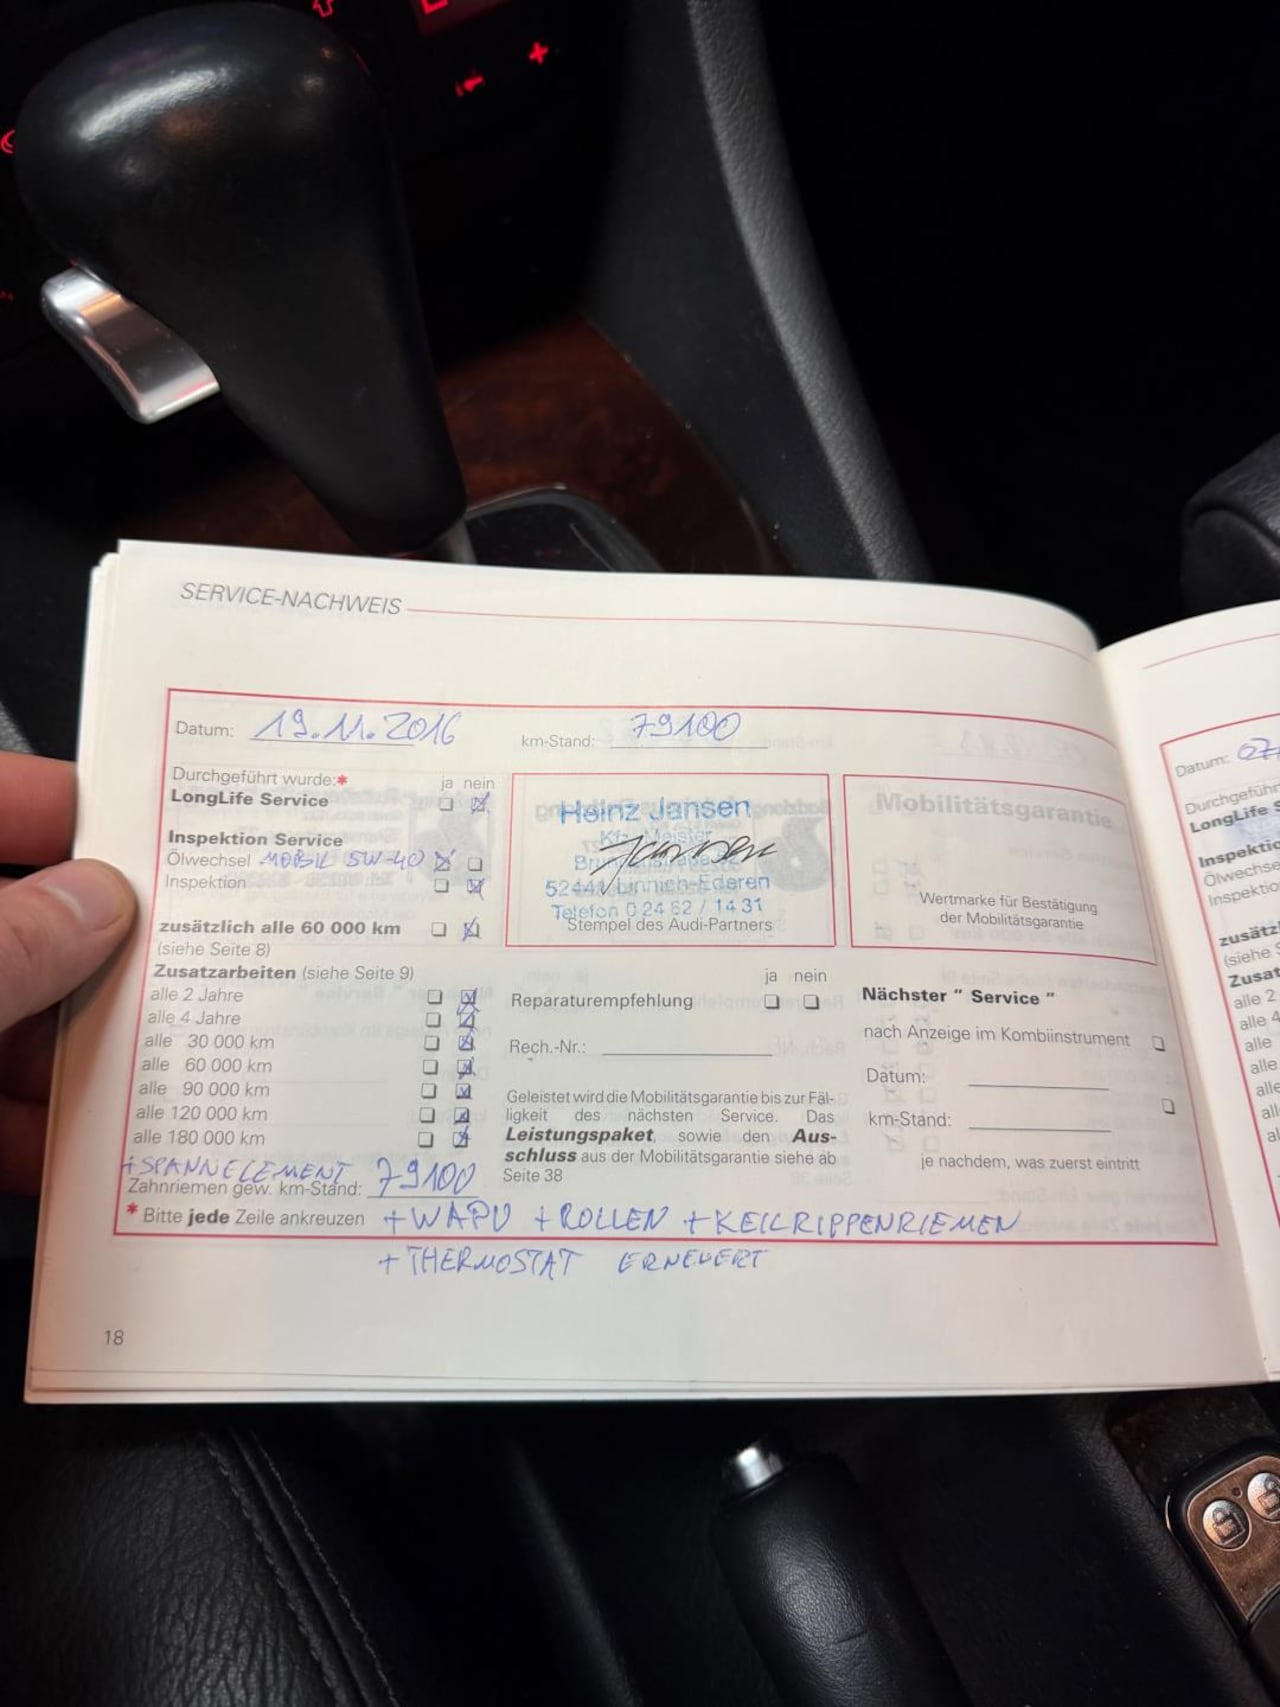 SERVICE-NACHWEIS
Datum: 19.11.2016
km-Stand: 79100
Durchgeführt wurde:* ja nein
LongLife Service
Inspektion Service
Ölwechsel MOBIL 5W-40
Inspektion
zusätzlich alle 60 000 km
(siehe Seite 8)
Zusatzarbeiten (siehe Seite 9)
alle 2 Jahre
alle 4 Jahre
alle 30 000 km
alle 60 000 km
alle 90 000 km
alle 120 000 km
alle 180 000 km
+SPANNELEMENT
Zahnriemen gew. km-Stand: 79100
* Bitte jede Zeile ankreuzen +WAPU +ROLLEN +KEILRIPPENRIEMEN
+ THERMOSTAT ERNEUERT
Heinz Jansen
Kfz-Meister
52441 Linnich-Ederen
Telefon 0 24 62 / 14 31
Stempel des Audi-Partners
Mobilitätsgarantie
Wertmarke für Bestätigung
der Mobilitätsgarantie
ja nein
Reparaturempfehlung
Rech.-Nr.:
Geleistet wird die Mobilitätsgarantie bis zur Fäl-
ligkeit des nächsten Service. Das
Leistungspaket, sowie den Aus-
schluss aus der Mobilitätsgarantie siehe ab
Seite 38
Nächster " Service "
nach Anzeige im Kombiinstrument
Datum:
km-Stand:
je nachdem, was zuerst eintritt
18
Datum: 07
Durchgeführ
LongLife S
Inspektio
Ölwechse
Inspektio
zusätzl
(siehe S
Zusat
alle 2
alle 4
alle
alle
alle
al